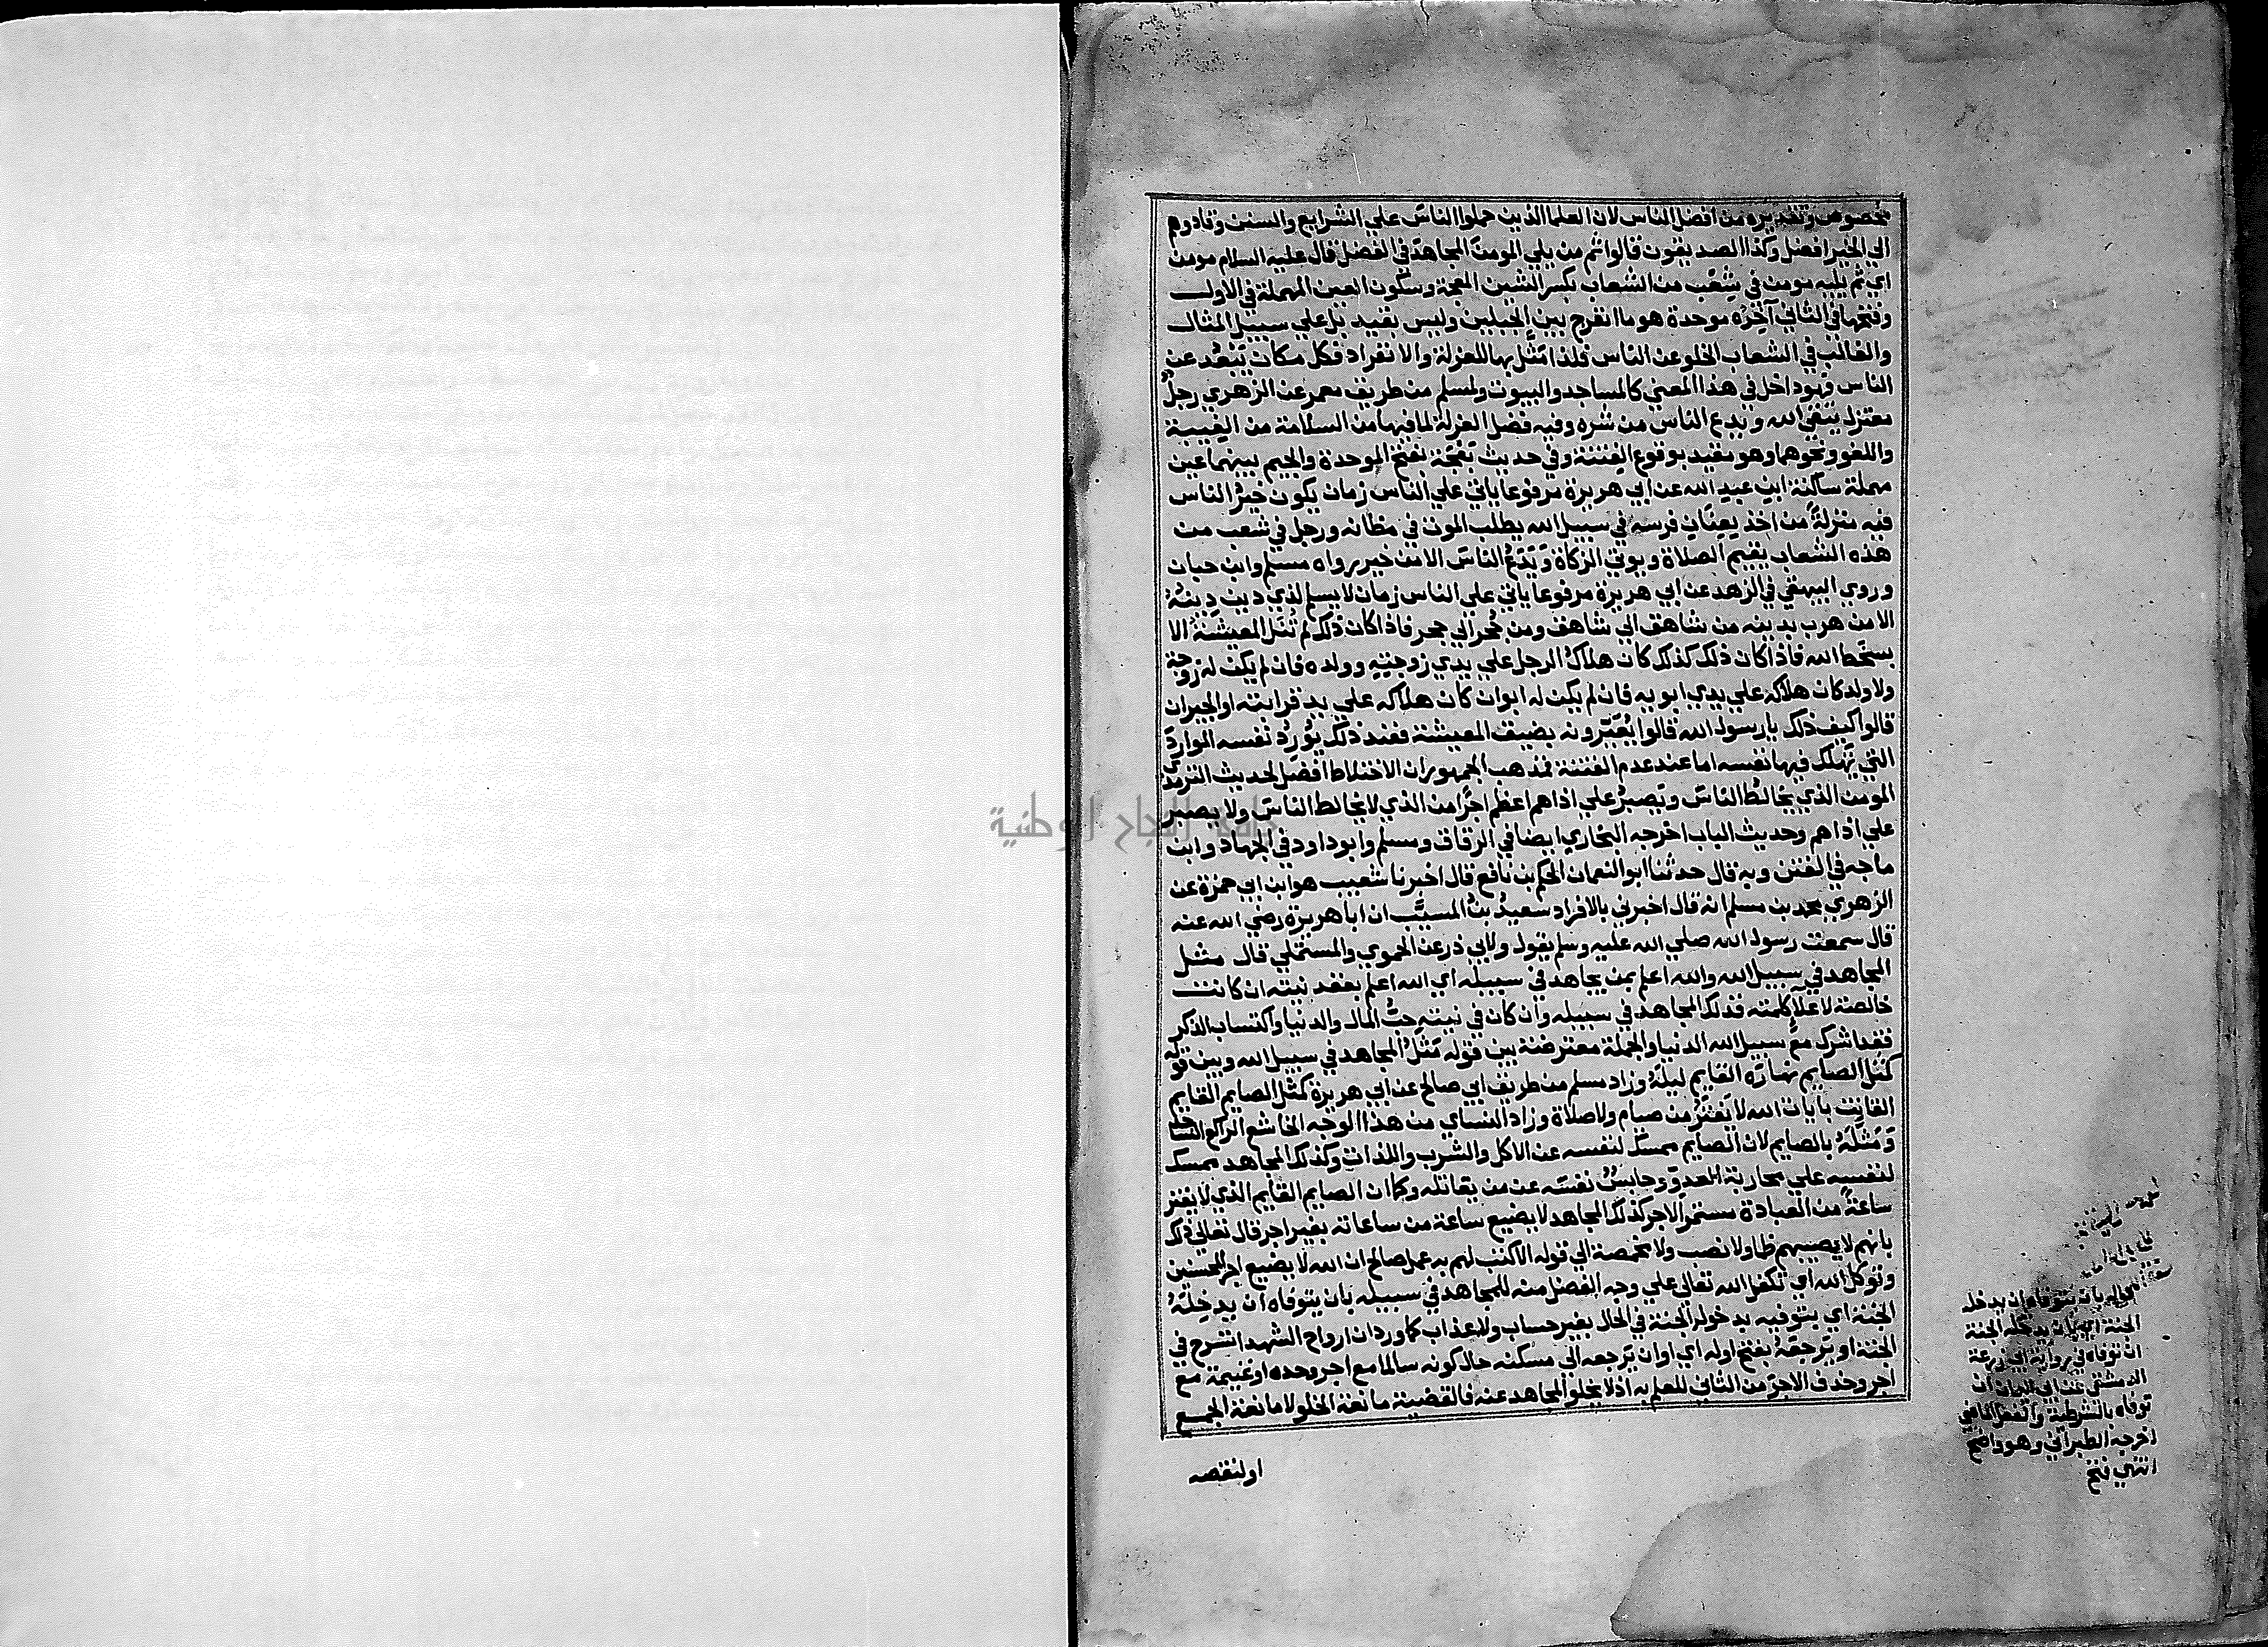 مخصوص وتقديره من افضل الناس لان العلما الذين حملوا الناس علي الشرايع والسنن وقادوهم
الي الخير افضل وكذا الصديقون قالوا ثم من يلي المومن المجاهد في الفضل قال عليه السلام مومن
اي ثم يليه مومن في شِعْب من الشعاب بكسر الشين المعجمة وسكون العين المهملة في الاول
وفتحها في الثاني آخره موحدة هو ما انفرج بين الجبلين وليس بقيد بل علي سبيل المثال
والغالب في الشعاب الخلو عن الناس فلذا مثل بها للعزلة والانفراد فكل مكان يَبْعُد عن
الناس فهو داخل في هذا المعني كالمساجد والبيوت ولمسلم من طريق معمر عن الزهري رجل
معتزل يتقي الله ويدع الناس من شره وفيه فضل العزلة لما فيها من السلامة من الغيبة
واللغو ونحوها وهو مقيد بوقوع الفتنة وفي حديث بَعْجَة بفتح الموحدة والجيم بينهما عين
مهملة ساكنة ابن عبد الله عن ابي هريرة مرفوعا ياتي علي الناس زمان يكون خيرُ الناس
فيه منزلةً من اخذ بعِنَانِ فرسه في سبيل الله يطلب الموت في مظانه ورجل في شعب من
هذه الشعاب يقيم الصلاة ويوتي الزكاة وَيَدَعُ الناسَ الا من خير رواه مسلم وابن حبان
وروي البيهقي في الزهد عن ابي هريرة مرفوعا ياتي علي الناس زمان لا يسلم لذي دين دِينُهُ
الا من هرب بدينه من شاهق الي شاهق ومن جُحر الي جحر فاذا كان ذلك لم تُنَل المعيشةُ الا
بسخط الله فاذا كان ذلك كذلك كان هلاك الرجل علي يدي زوجتهِ وولده فان لم يكن له زوجة
ولا ولد كان هلاكه علي يدي ابويه فان لم يكن له ابوان كان هلاكه علي يد قرابته او الجيران
قالوا كيف ذلك يا رسول الله قالوا يُعَيِّرونه بضيق المعيشة فعند ذلك يُورِدُ نفسه المواردَ
التي يَهلك فيها نفسه اما عند عدم الفتنة فمذهب الجمهور ان الاختلاط افضل لحديث الترمذي
المومن الذي يخالطُ الناسَ ويَصبرُ علي اذاهم اعظم اجرًا من الذي لا يخالط الناسَ ولا يصبر
علي اذاهم وحديث الباب اخرجه البخاري ايضا في الرقاق ومسلم وابو داود في الجهاد وابن
ماجه في الفتن وبه قال حدثنا ابو النعمان الحكم بن نافع قال اخبرنا شعيب هو ابن ابي حمزة عن
الزهري محمد بن مسلم انه قال اخبرني بالافراد سعيدُ بنُ المسيَّب ان ابا هريرة رضي الله عنه
قال سمعت رسول الله صلي الله عليه وسلم يقول ولابي ذر عن الحموي والمستملي قال مثل
المجاهد في سبيل الله والله اعلم بمن يجاهد في سبيله اي الله اعلم بعقد نيته ان كانت
خالصة لاعلآ كلمته فذلك المجاهد في سبيله وان كان في نيتهِ حبُّ المال والدنيا واكتساب الذكر
فقد اشرك مع سبيل الله الدنيا والجملة معترضة بين قوله مَثَلُ المجاهد في سبيل الله وبين قوله
كمثل الصايم نهارَه القايمِ ليلَهُ وزاد مسلم من طريق ابي صالح عن ابي هريرة كمثل الصايم القايم
القانت بايات الله لا يَفترُ من صيام ولا صلاة وزاد النساي من هذا الوجه الخاشع الراكع الساجد
وَمَثَّلَهُ بالصايم لان الصايم ممسك لنفسه عن الاكل والشرب واللذات وكذلك المجاهد ممسك
لنفسِه علي محاربة العدوّ وحابسٌ نفسَه عن من يقاتله وكما ان الصايم القايم الذي لا يفتر
ساعةً من العبادة مستمرُّ الاجر كذلك المجاهد لا يضيع ساعة من ساعاته بغير اجر قال تعالي ذلك
بانهم لا يصيبهم ظما ولا نصب ولا مخمصة الي قوله الا كتب لهم به عمل صالح ان الله لا يضيع اجر المحسنين
وتوكل الله اي تكفل الله تعالي علي وجه الفضل منه للمجاهد في سبيله بان يتوفاه ان يدخلَهُ
الجنة اي بتوفيه بدخوله الجنة في الحال بغير حساب ولا عذاب كما ورد ان ارواح الشهدا تسرح في
الجنة او يَرجعَهُ بفتح اوله اي او ان يَرجعه الي مسكنه حال كونه سالما مع اجر وحده او غنيمة مع
اجر وحذف الاجر من الثاني للعلم به اذ لا يخلو المجاهد عنه فالقضية مانعة الخلو لا مانعة الجمع
او لنقصه
قوله بان يتوفاه ان يدخله
الجنة اي بان يدخله الجنة
ان توفاه في رواية ابي زرعة
الدمشقي عن ابي اليمان ان
توفاه بالشرطية والفعل الماضي
اخرجه الطبراني وهو واضح
انتهي فتح
جامعة النجاح الوطنية